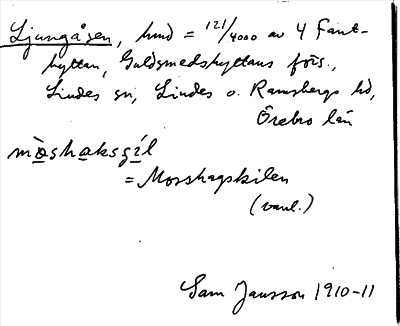 Ljungåsen, hmd = 121/4000 av 4 Fant-
hyttan, Guldsmedshyttans förs.,
Lindes sn, Lindes o. Ramsbergs hd,
Örebro län
mòshaksgíl
= Morshagskilen
(vanl.)
Sam Jansson 1910-11